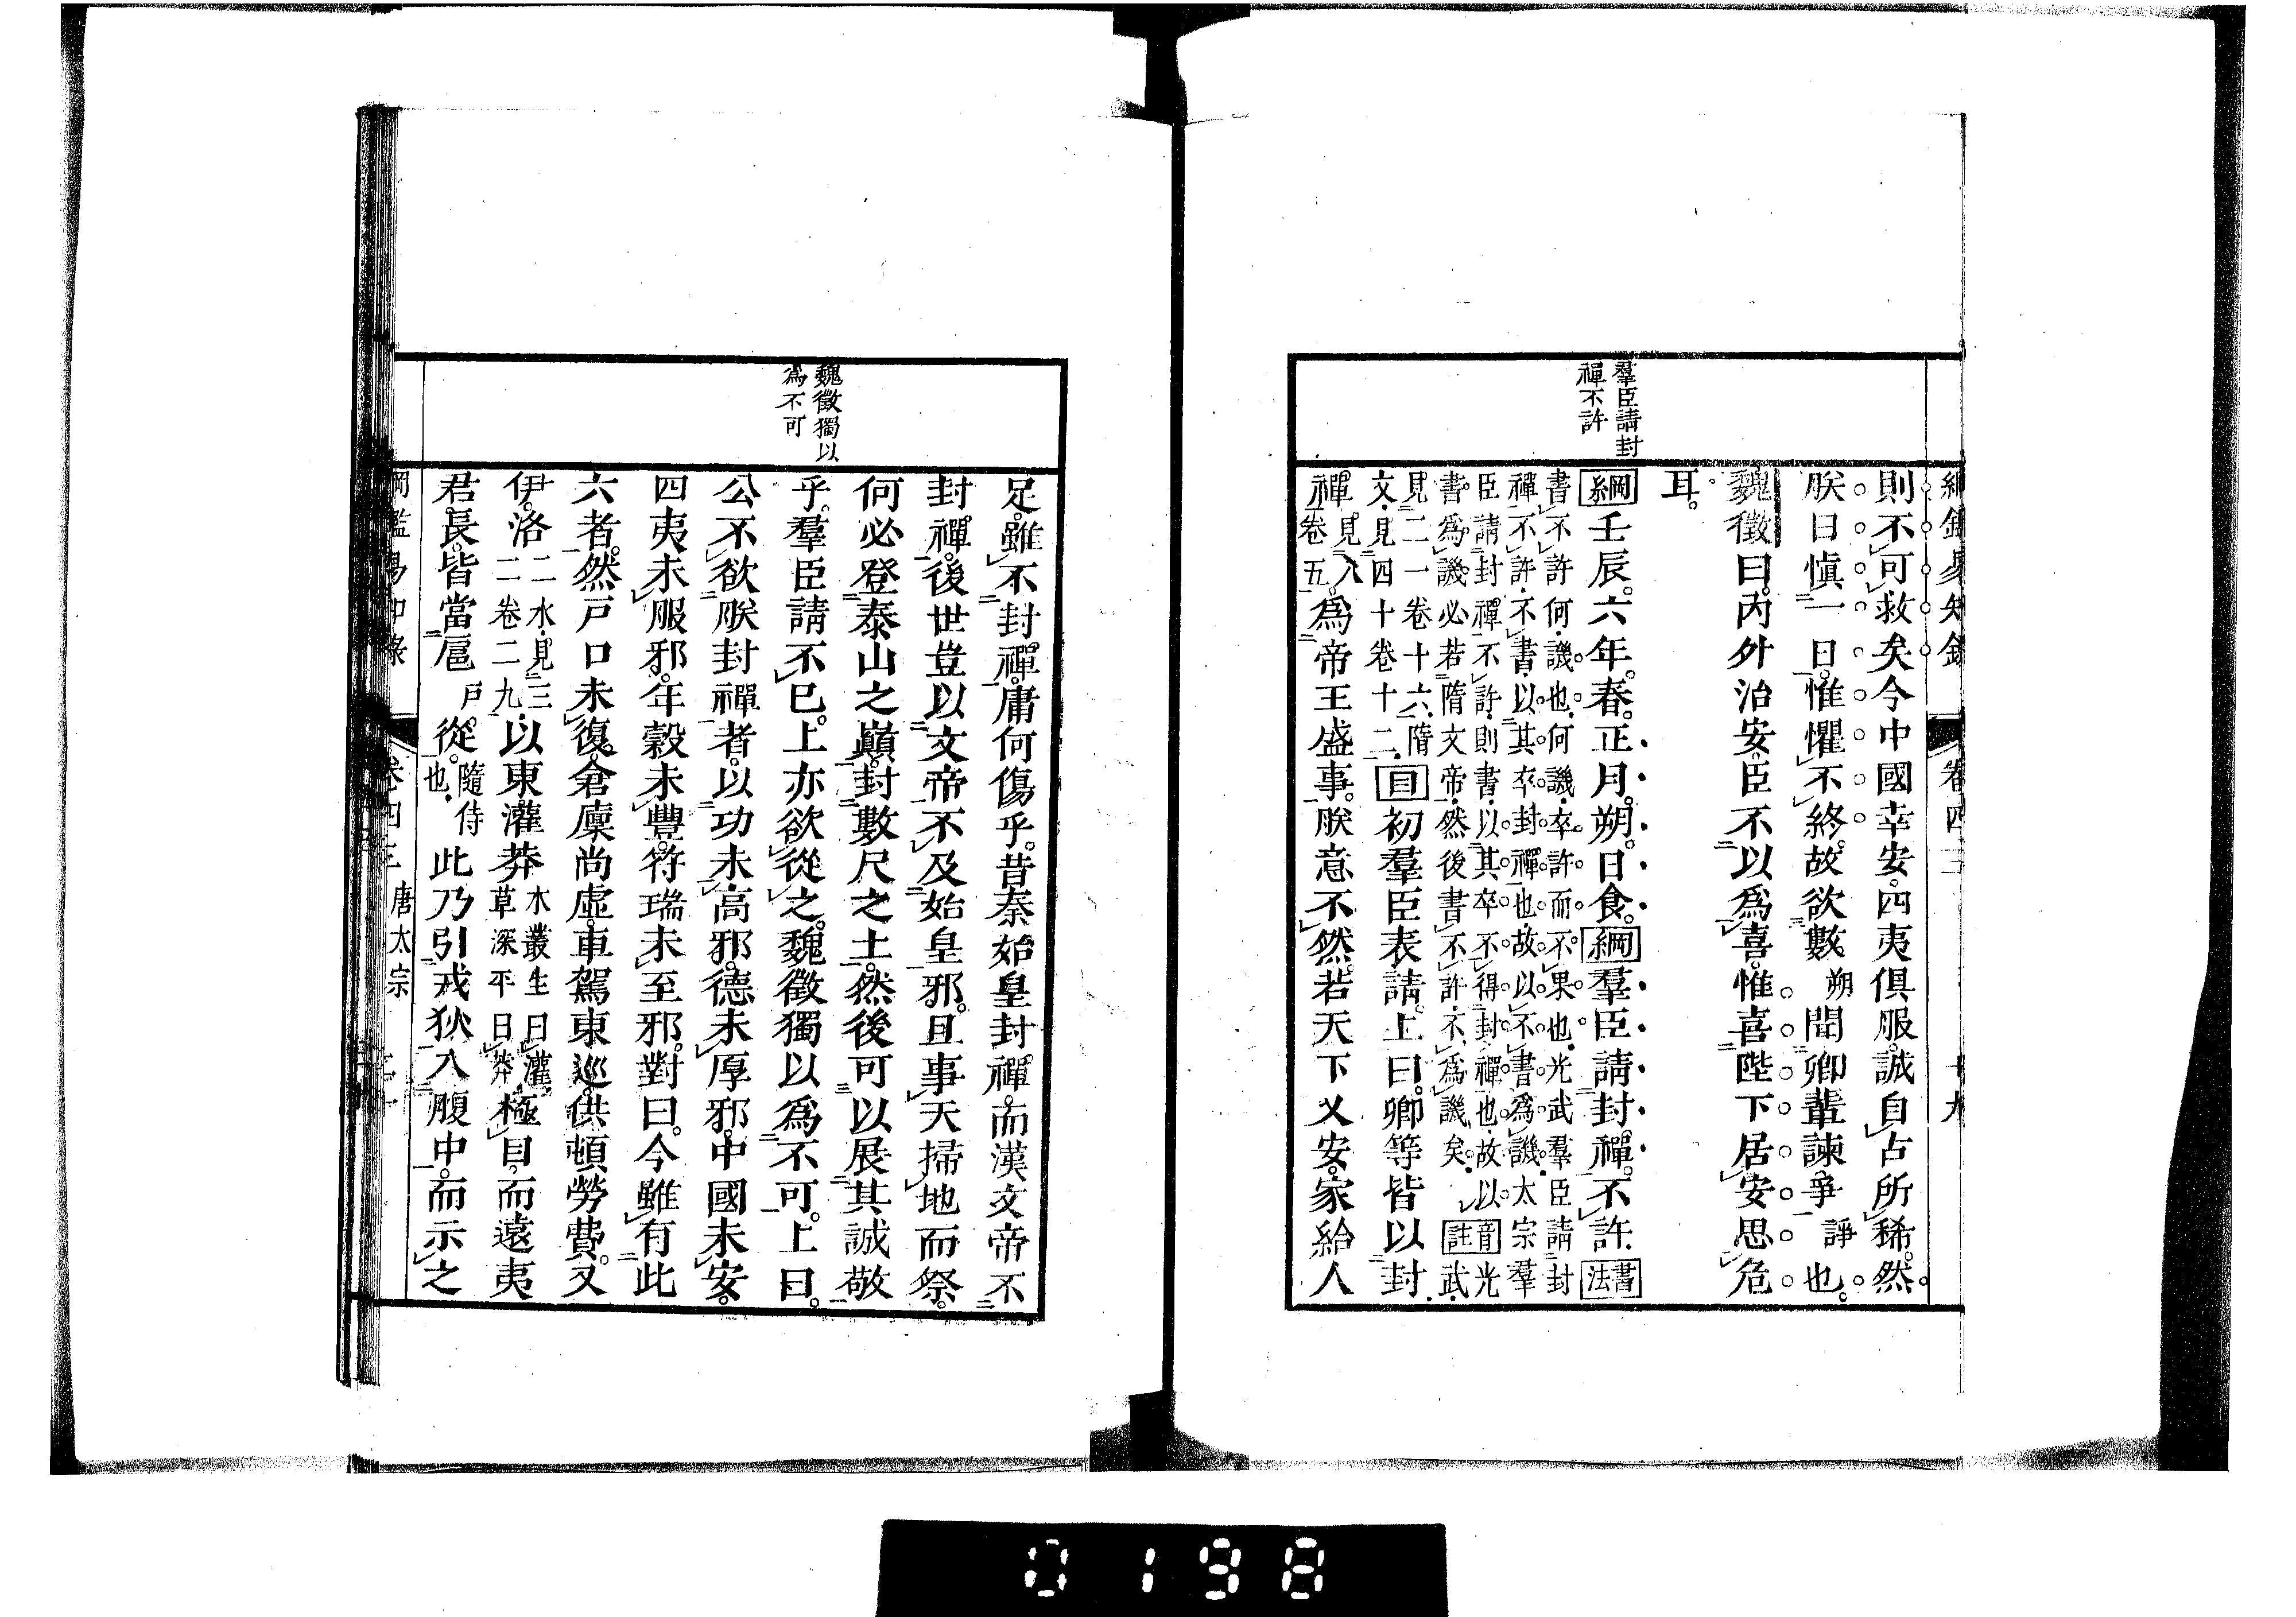 綱鑑易知錄 卷四三 十九
羣臣請封
禪不許
則不可救矣今中國幸安四夷俱服誠自古所稀然
朕日慎一日惟懼不終故欲數朔聞卿輩諫爭諍也
魏徵曰內外治安臣不以為喜惟喜陛下居安思危
耳
綱壬辰六年春正月朔日食綱羣臣請封禪不許書法
書不許何譏也何譏卒許而不果也光武羣臣請封
禪不許不書以其卒封禪也故以不書為譏太宗羣
臣請封禪不許則書以其卒不得封禪也故以
書為譏必若隋文帝然後書不許不為譏矣
音註光武
見二一卷十六隋
文見四十卷十二
目初羣臣表請上曰卿等皆以封
禪見八卷五為帝王盛事朕意不然若天下乂安家給人
魏徵獨以
為不可
足雖不封禪庸何傷乎昔秦始皇封禪而漢文帝不
封禪後世豈以文帝不及始皇邪且事天掃地而祭
何必登泰山之巔封數尺之土然後可以展其誠敬
乎羣臣請不已上亦欲從之魏徵獨以為不可上曰
公不欲朕封禪者以功未高邪德未厚邪中國未安
四夷未服邪年穀未豐符瑞未至邪對曰今雖有此
六者然戶口未復倉廩尚虛車駕東巡供頓勞費又
伊洛二水見三二卷二九以東灌莽木叢生曰灌草深平曰莽極目而遠夷
君長皆當扈戶從隨侍也此乃引戎狄入腹中而示之
綱鑑易知錄 卷四三 唐太宗
0198